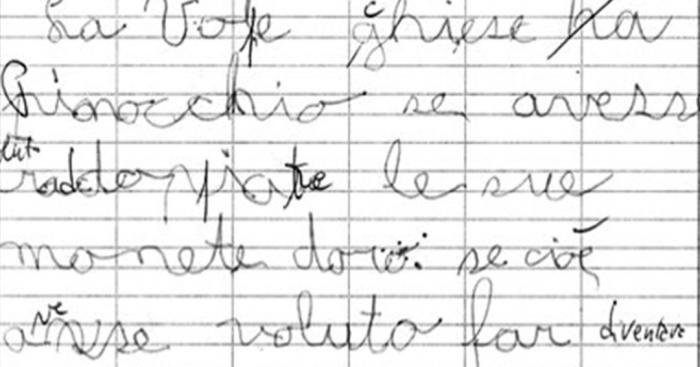 La Volpe chiese ha
Pinocchio se avess
raddopiatre le sue
monete doro: se cioè
avesse voluto far diventare